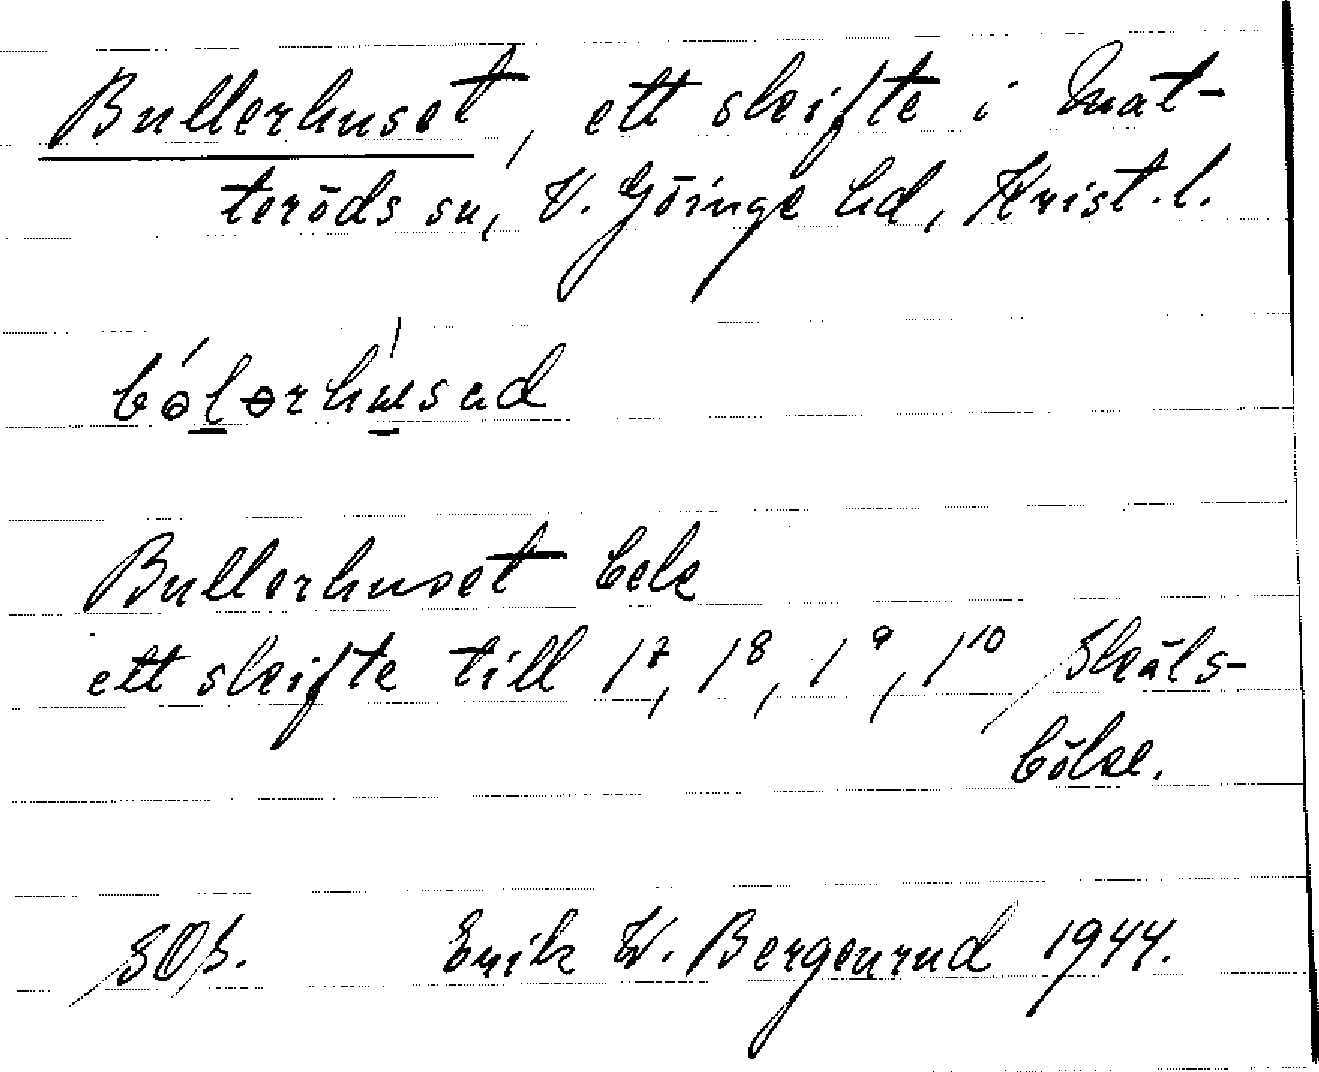 Bullerhuset, ett skifte i Mat-
teröds sn, V. Göinge hd, Krist. l.
bólərhúsad
Bullerhuset bek
ett skifte till 1⁷, 1⁸, 1⁹, 1¹⁰ Skäls-
böke.
SOS. Erik W. Bergenrud 1944.